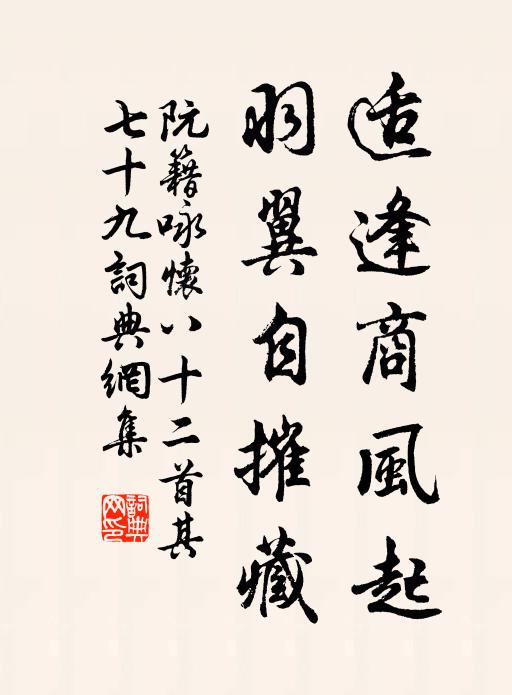 适逢商風起
羽翼自摧藏
阮籍咏懷八十二首其
七十九詞典網集
詞典
网印